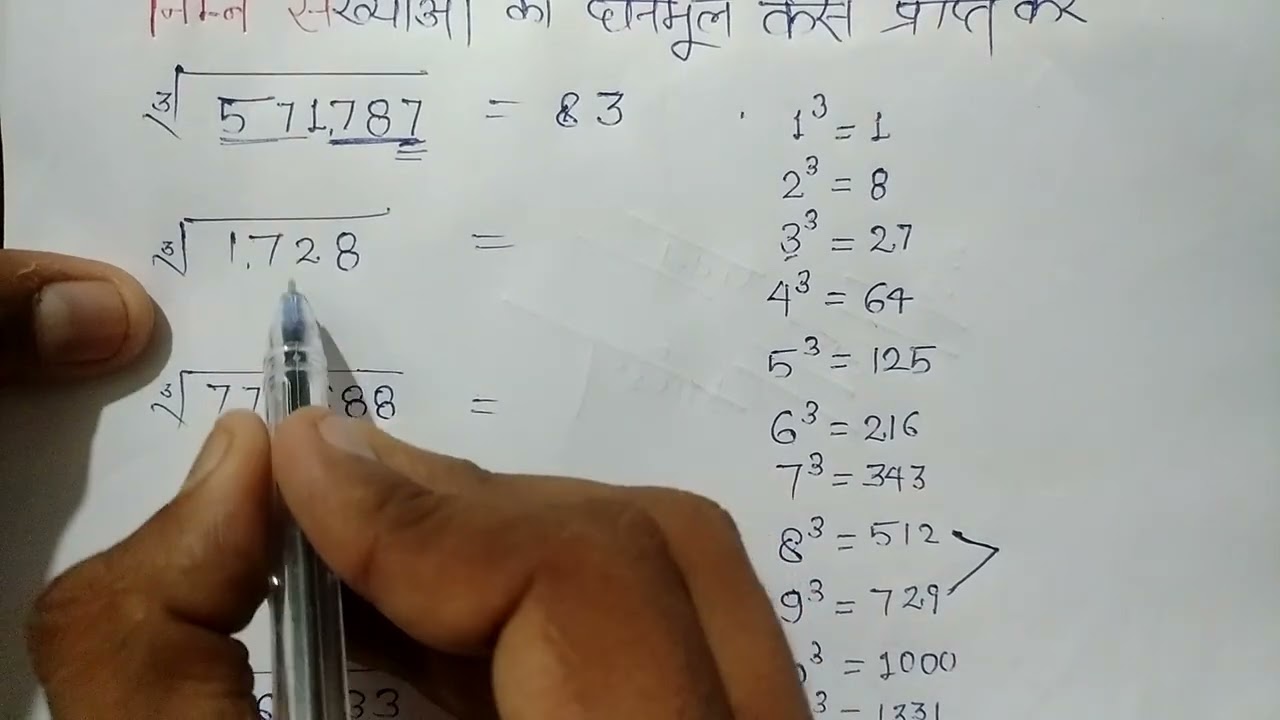 निम्न संख्याओं का घनमूल कैसे प्राप्त करें
∛571,787 = 83
∛1,728 =
=
1³ = 1
2³ = 8
3³ = 27
4³ = 64
5³ = 125
6³ = 216
7³ = 343
8³ = 512
9³ = 729
³ = 1000
³ = 1331